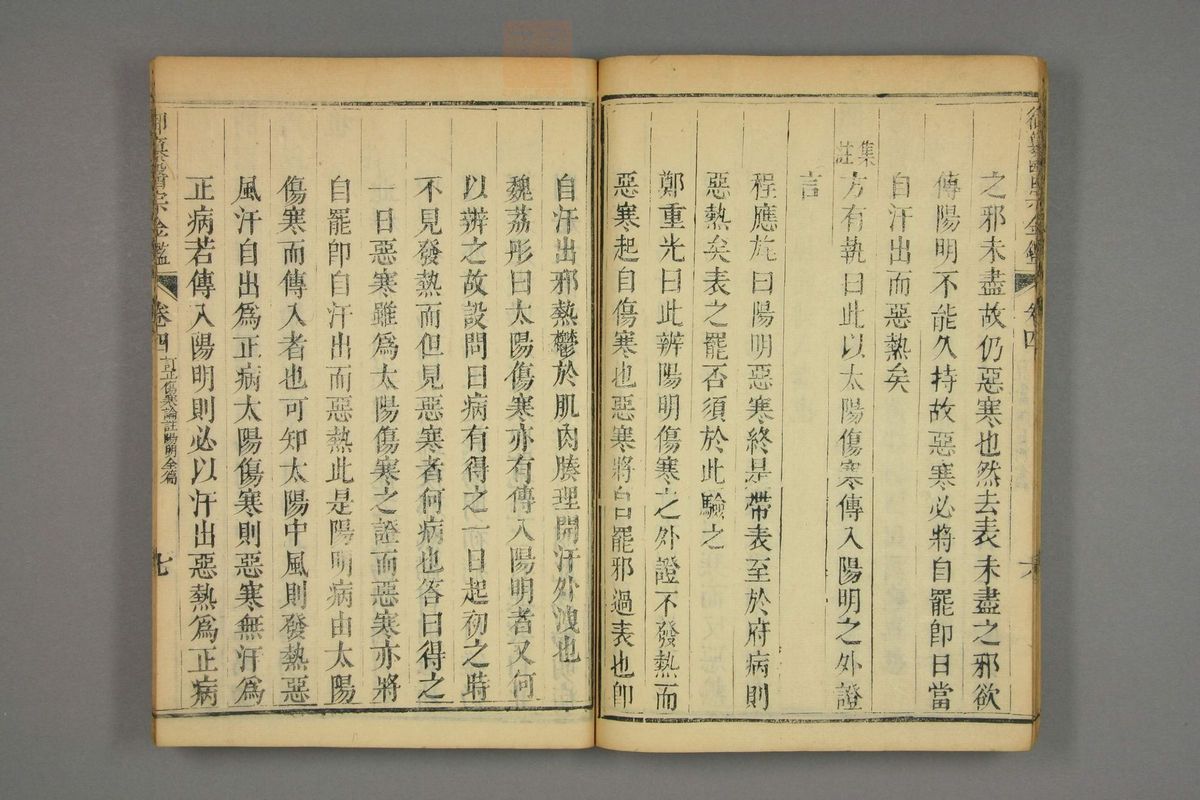 之邪未盡故仍惡寒也然去表未盡之邪欲
傳陽明不能久持故惡寒必將自罷即日當
自汗出而惡熱矣
集註
方有執曰此以太陽傷寒傳入陽明之外證
言
程應旄曰陽明惡寒終是帶表至於府病則
惡熱矣表之罷否須於此驗之
鄭重光曰此辨陽明傷寒之外證不發熱而
惡寒起自傷寒也惡寒將自罷邪過表也即
自汗出邪熱鬱於肌肉腠理開汗外洩也
魏荔彤曰太陽傷寒亦有傳入陽明者又何
以辨之故設問曰病有得之一日起初之時
不見發熱而但見惡寒者何病也答曰得之
一日惡寒雖爲太陽傷寒之證而惡寒亦將
自罷即自汗出而惡熱此是陽明病由太陽
傷寒而傳入者也可知太陽中風則發熱惡
風汗自出爲正病太陽傷寒則惡寒無汗爲
正病若傳入陽明則必以汗出惡熱爲正病
御纂醫宗金鑑
卷四
訂正傷寒論註陽明全篇
七